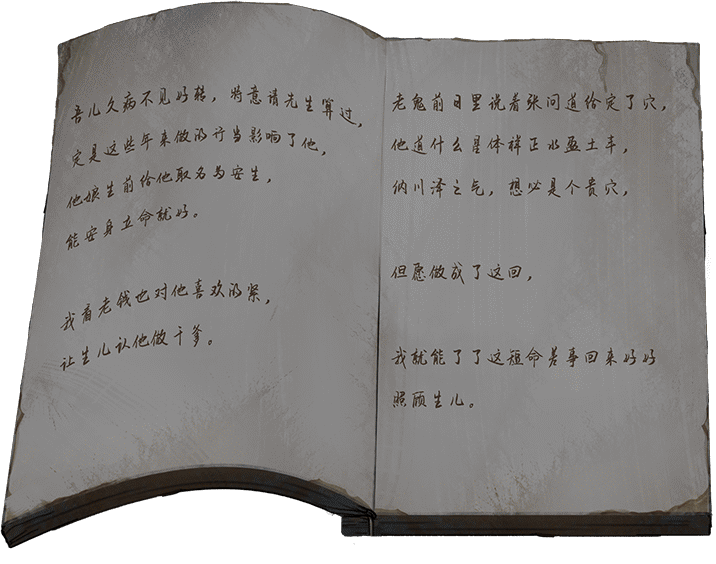 吾儿久病不见好转，特意请先生算过，
定是这些年来做的行当影响了他，
他娘生前给他取名为安生，
能安身立命就好。
我看老钱也对他喜欢的紧，
让生儿认他做干爹。
老鬼前日里说着张问道给定了穴，
他道什么星体祥正水盈土丰，
纳川泽之气，想必是个贵穴，
但愿做成了这回，
我就能了了这短命差事回来好好
照顾生儿。